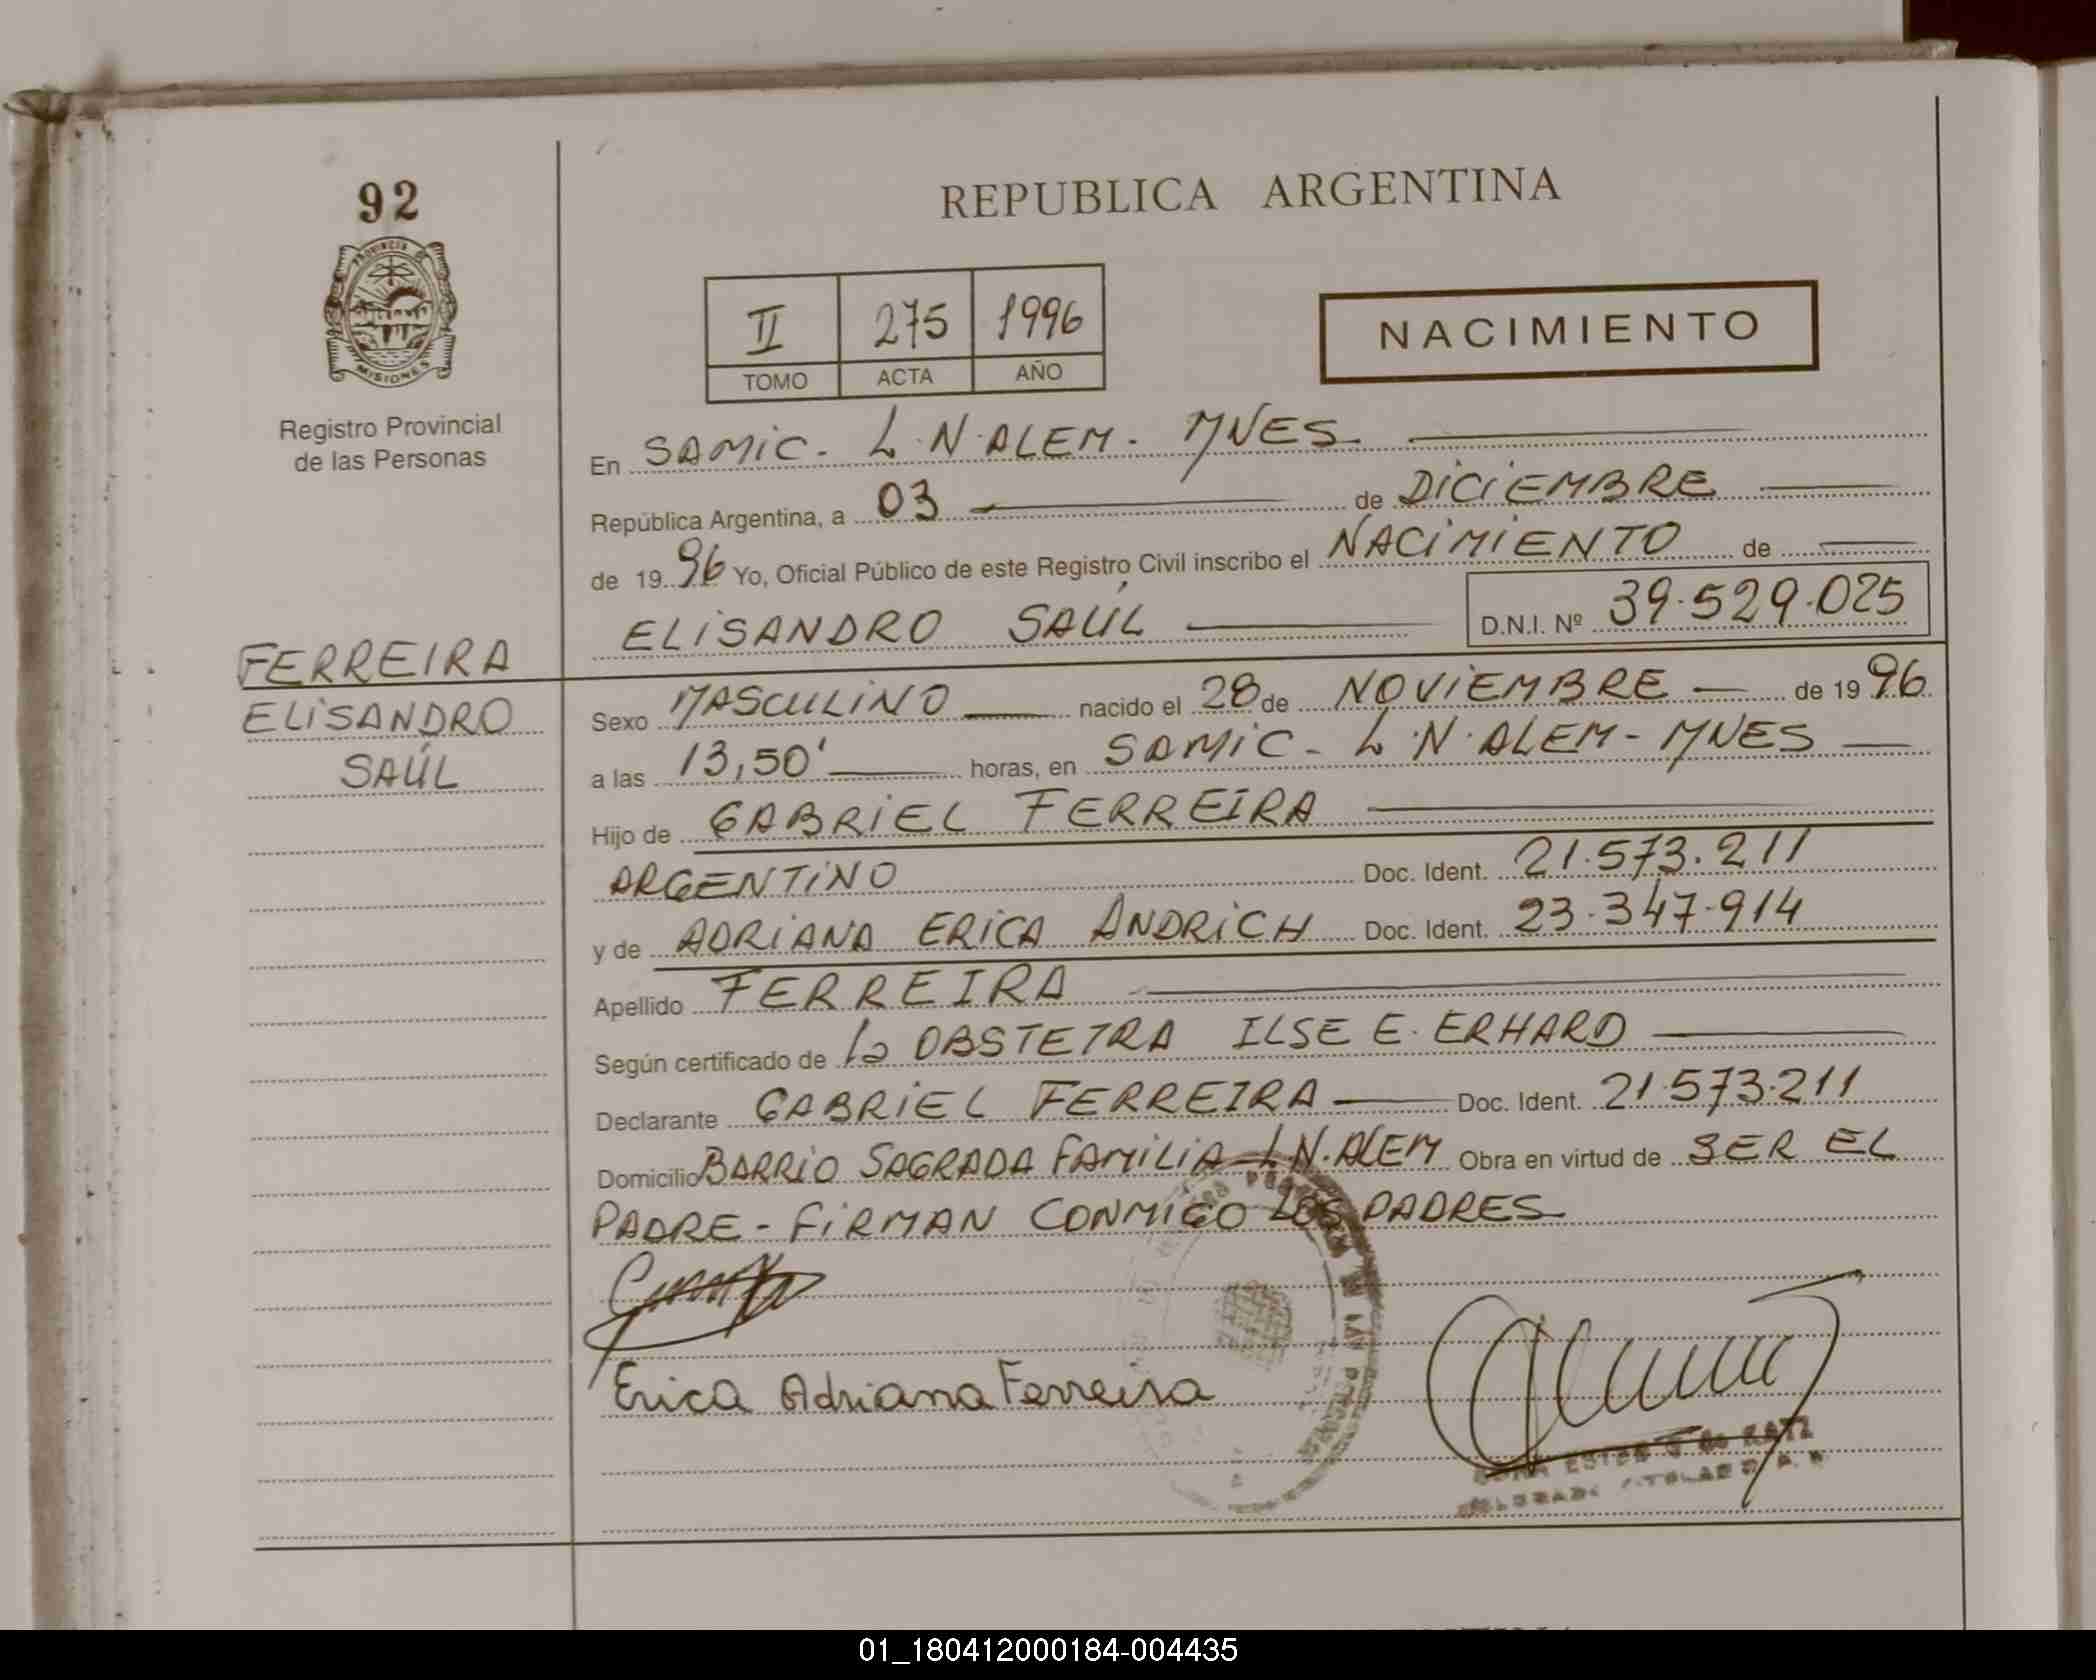 92
PROVINCIA DE
MISIONES
Registro Provincial
de las Personas
FERREIRA
ELISANDRO
SAÚL
REPUBLICA ARGENTINA
II 275 1996
TOMO ACTA AÑO
NACIMIENTO
En SAMIC. L.N.ALEM. MNES.
República Argentina, a 03 de DICIEMBRE
de 1996 Yo, Oficial Público de este Registro Civil inscribo el NACIMIENTO de
ELISANDRO SAÚL D.N.I. Nº 39.529.025
Sexo MASCULINO nacido el 28 de NOVIEMBRE de 1996
a las 13,50' horas, en SAMIC - L.N.ALEM - MNES
Hijo de GABRIEL FERREIRA
ARGENTINO Doc. Ident. 21.573.211
y de ADRIANA ERICA ANDRICH Doc. Ident. 23.347.914
Apellido FERREIRA
Según certificado de la OBSTETRA ILSE E. ERHARD
Declarante GABRIEL FERREIRA Doc. Ident. 21.573.211
Domicilio BARRIO SAGRADA FAMILIA - L.N.ALEM Obra en virtud de SER EL
PADRE - FIRMAN CONMIGO LOS PADRES
Erica Adriana Ferreira
01_180412000184-004435